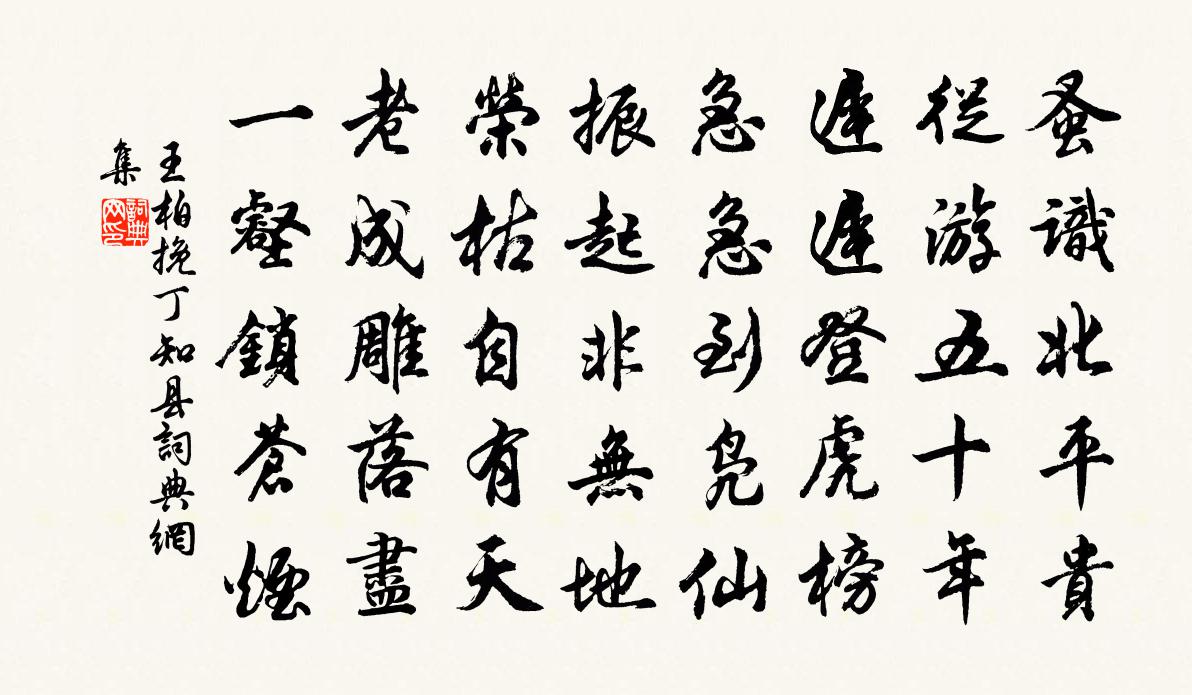 蚤識北平貴
從游五十年
遲遲登虎榜
急急到鳧仙
振起非無地
榮枯自有天
老成雕落盡
一壑鎖蒼煙
王柏挽丁知县詞典網
集
詞典
网印